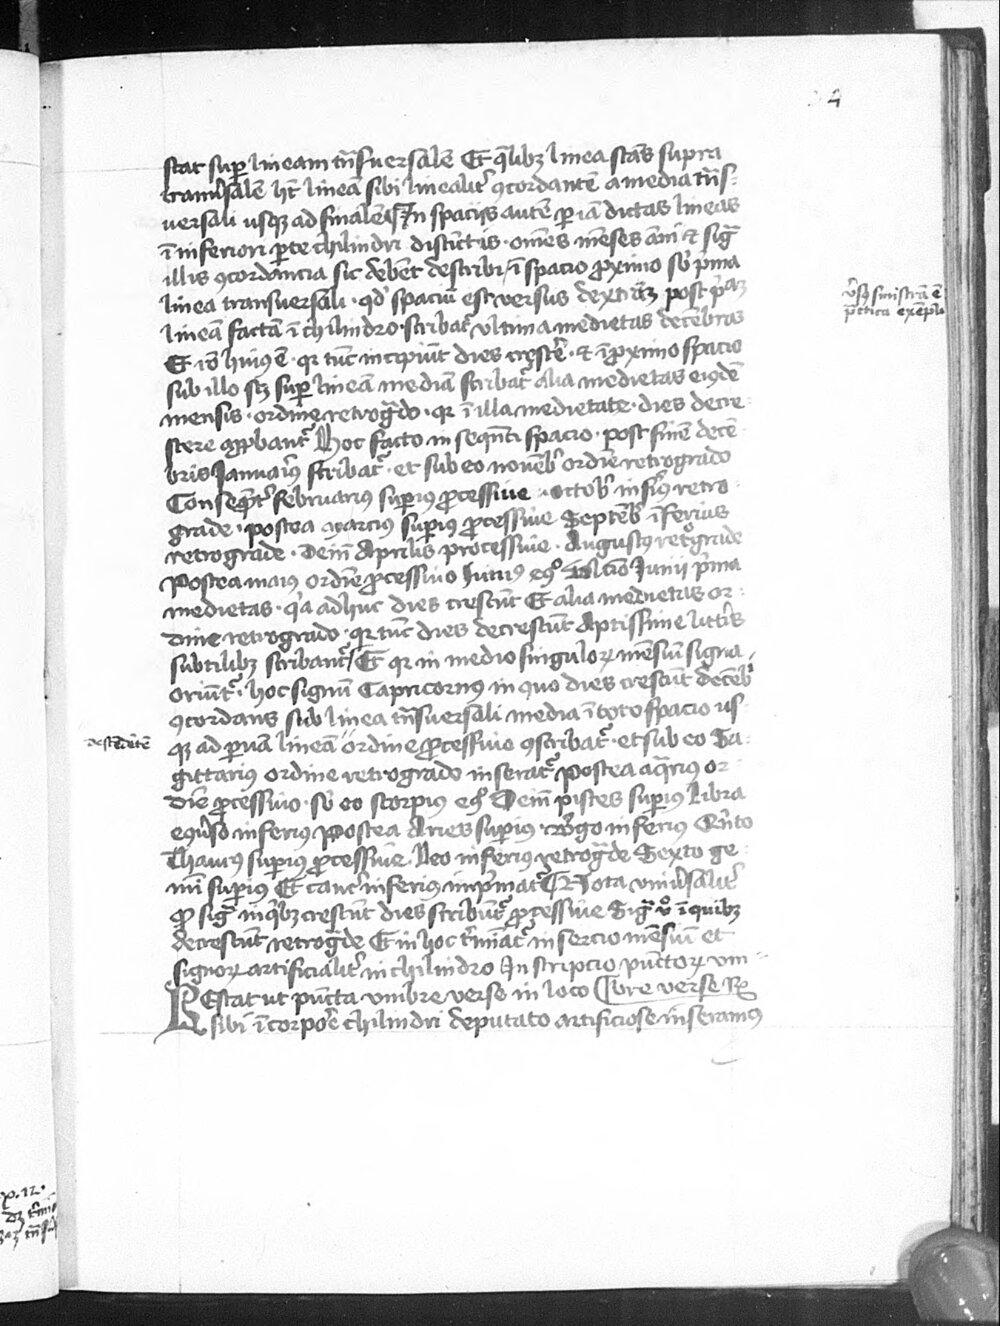 34
stat supͥ lineam tn̄suersalē Et q̄libꝫ linea stās supra
tranuͥsalē hꝫ lineā sibi linealitͥ ꝯcordantē a media tn̄s-
uersali usqꝫ ad finalē In spacijs autē ꝑ iā dictas lineas
ī inferiori ꝑte chilindri distīctis · om̄es mēses ān̄i & sigͣ
illis ꝯcordancia sic debēt describi / ī spacio ꝓximo sbͥ pͥma
linea transuersali · qd̕ spaciū est versus dextrā post pͥaꝫ
lineā factā ī chilindro · scribatͬ vltima medietas decēbris
Et iō huiꝰ ē · qr tūc incipiūt dies crescerͤ · & ī ꝓximo spacio
sub illo scꝫ supͥ lineā mediā scribatͬ alia medietas eiꝰdē
mensis · ordine retrogͣdo · qr ī illa medietate · dies decre-
scere ꝓbantͬ Hoc facto in seqn̄ti spacio · post finē decē-
bris Januariꝰ scribatͬ · et sub eo nouēbͥ ordīe retrogrado
Conseqn̄tͥ Februarius supiꝰ ꝓcessiue · octobͥ infiꝰ retro-
grade · postea marcius supiꝰ ꝓcessiue Septēbͥ īferius
retrograde · Deīn Aprilis processiue · Augustꝰ ret°grade
Postea maius ordīe ꝓcessiuo Juniꝰ Junij pͥma
medietas · qͥa adhuc dies crescūt Et alia medietas or-
dine retrogrado · qr tūc dies decrescūt Aptissime litterͥs
subtilibꝫ scribantͬ / Et qr in medio singuloꝝ mēsiū signa
oriūtͬ · hoc signū Capricornꝰ in quo dies crescūt decēbͥ
ꝯcordans sub linea tn̄suersali media ī toto spacio us-
qꝫ ad ꝑuā lineā ordine ꝓcessiuo ꝯscribatͬ · et sub eo Sa-
gittariꝰ ordine retrogrado inseratͬ Postea aqͣriꝰ or-
dīe ꝓcessiuo · sbͥ eo scorpius Deīn pisces supiꝰ Libra
inferius Postea Aries supiꝰ · virgo inferiꝰ Qͥnto
Thaurꝰ supiꝰ ꝓcessiue · Leo inferiꝰ retrogͣde Sexto ge-
mī supiꝰ Et cancͥ inferiꝰ impͥmatͬ Nota vniuͥsalitͥ
ꝓ sigͣ in qͥbꝫ crescūt dies scribūtͬ ꝓcessiue Sigͣ v° ī quibꝫ
decrescūt retrogͣde Et in hoc tͥmīatͬ insercio mēsiū et
signoꝝ artificialitͥ in chilindro Inscripcio pūctoꝝ vm-
REstat ut pūcta vmbre verse in loco bre verse Rͣ
sibi ī corporͤ chilindri deputato artificiose inseramꝰ
vͥsꝰ sinistrā ē
descēdētē